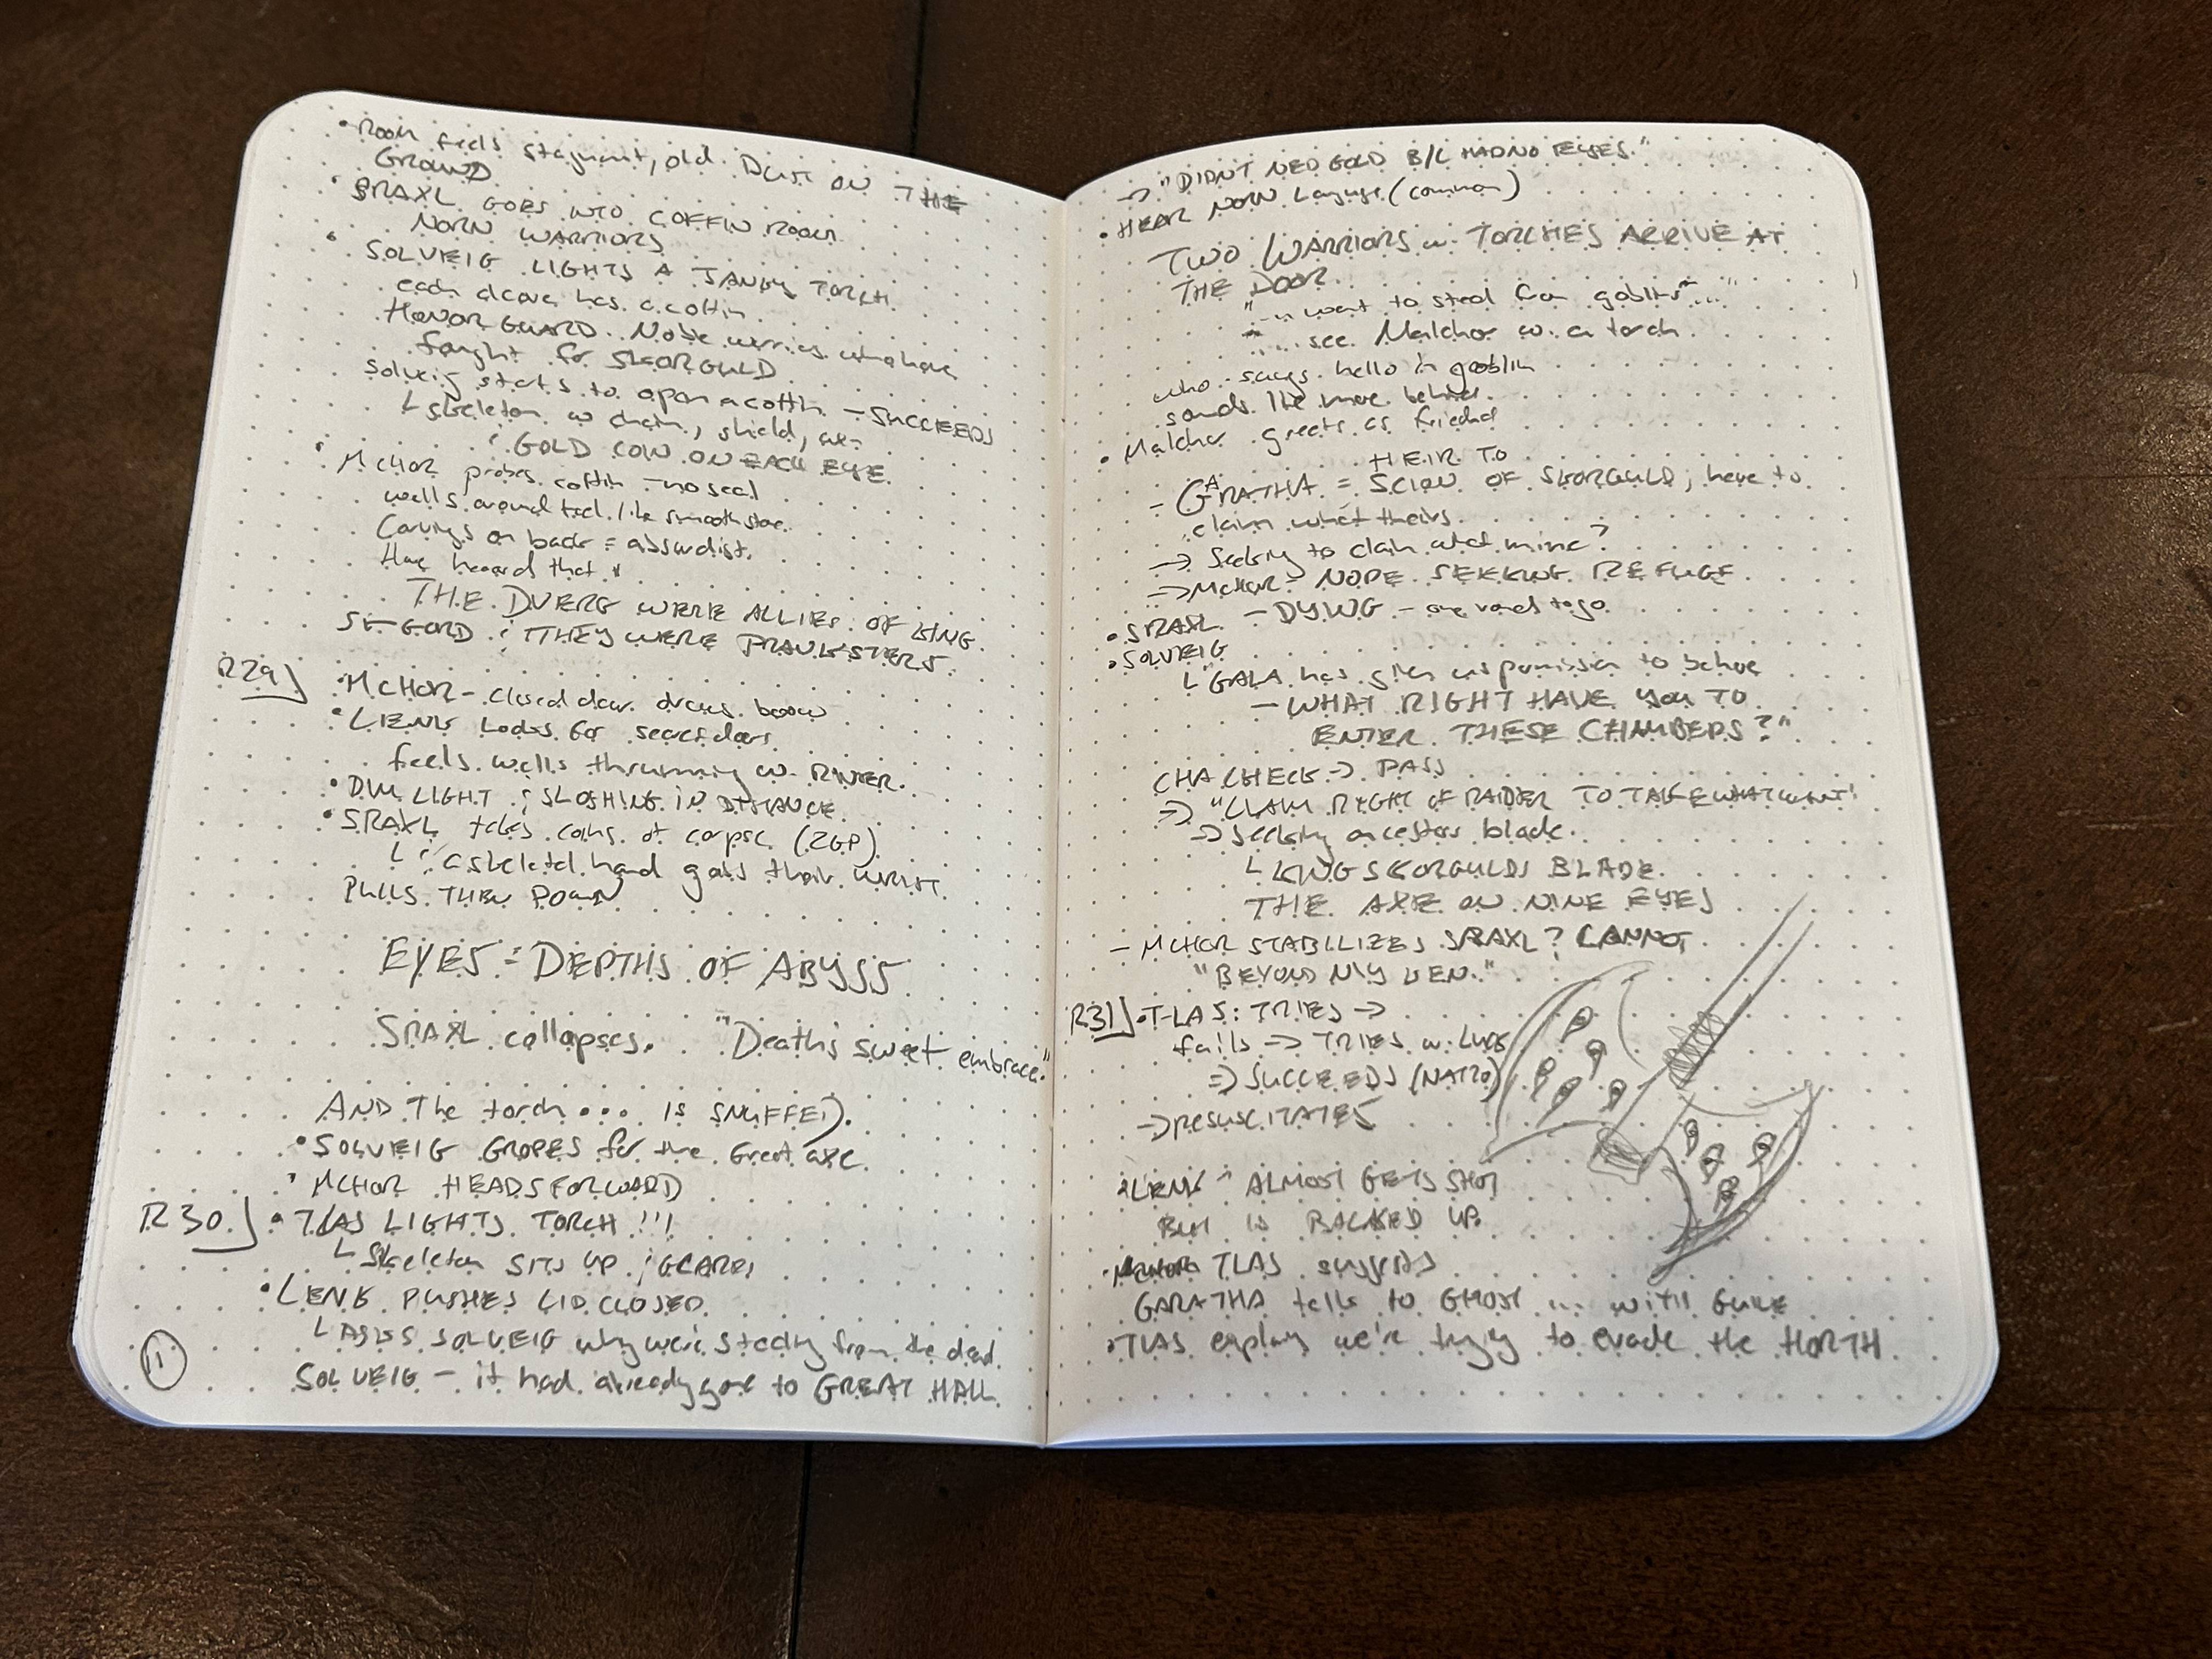 • Room feels stagnant, old. Dust ON THE
GROUND
• SRAXL GOES INTO COFFIN ROOM
NORN WARRIORS
• SOLVEIG LIGHTS A JANKY TORCH
each alcove has a coffin
HONOR GUARD. Noble warriors who have
fought for SKORGULD
Solveig starts to open a coffin – SUCCEEDS
L skeleton w chain, shield, axe
; GOLD COIN ON EACH EYE
• MCHOR probes coffin – no seal
walls around feel like smooth stone.
Carvings on back = absurdist.
Have heard that
THE DVERG WERE ALLIES OF KING
SKGORD ; THEY WERE PRANKSTERS.
R29
• MCHOR – closed door draws bow
• LIENK Looks for secret doors
feels walls thrumming w. RIVER.
• DIM LIGHT ; SLOSHING IN DISTANCE
• SRAXL takes coins of corpse (2GP)
L ; a skeletal hand grabs their WRIST.
PULLS THEM DOWN
EYES = DEPTHS OF ABYSS
SRAXL collapses. "Death's sweet embrace."
AND The torch ... IS SNUFFED.
• SOLVEIG GROPES for the Great axe.
• MCHOR HEADS FORWARD
R30.
• TLAS LIGHTS TORCH !!!
L Skeleton SITS UP ; GLARES
• LENK PUSHES LID CLOSED.
L ASKS SOLVEIG why we're stealing from the dead.
SOLVEIG – it had already gone to GREAT HALL
11
-> "DIDNT NEED GOLD B/C HAD NO EYES."
• HEAR NORN Language (common)
TWO WARRIORS w. TORCHES ARRIVE AT
THE DOOR.
" want to steal from goblins ..."
.... see Malchor w. a torch
who says hello in goblin
sounds like more behind.
• Malchor greets as friend
HEIR TO
- GARATHA = SCION OF SKORGULD; here to
claim what theirs.
-> Seeking to claim what mine?
-> MCHOR = NOPE SEEKING REFUGE
• SRAXL – DYING – one round to go
• SOLVEIG
L "GALA has given us permission to be here
– WHAT RIGHT HAVE YOU TO
ENTER THESE CHAMBERS?"
CHA CHECK -> PASS
=> "CLAIM RIGHT OF RAIDER TO TAKE WHAT WANT"
-> Seeking ancestors blade.
L KING SKORGULDS BLADE.
THE AXE ON NINE EYES
– MCHOR STABILIZES SRAXL? CANNOT
"BEYOND MY KEN."
R31
• T-LAS: TRIES ->
fails => TRIES w. Luck
=> SUCCEEDS (NAT20)
-> RESUSCITATES
• LENK – ALMOST GETS SHOT
BUT IS BACKED UP.
• TLAS suggests
GARATHA talks to GHOST ... WITH GUILE
• TLAS explains we're trying to evade the HORTH